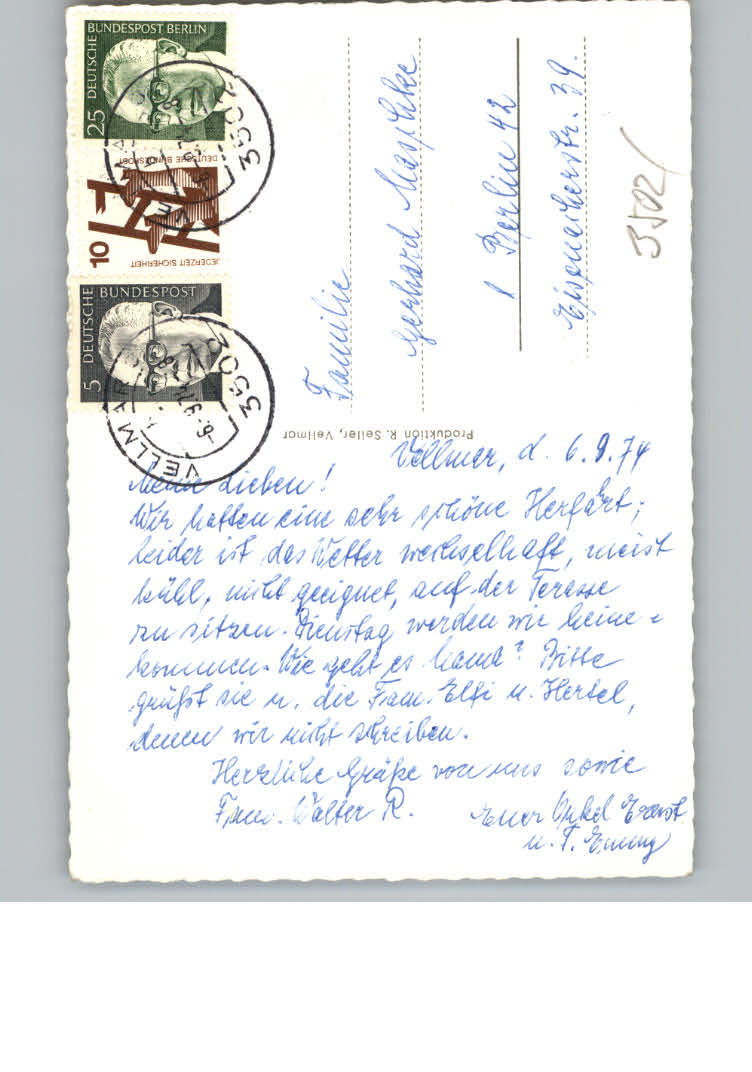 DEUTSCHE BUNDESPOST BERLIN
25
DEUTSCHE BUNDESPOST
JEDERZEIT SICHERHEIT
10
DEUTSCHE BUNDESPOST
5
3502
VELLMAR
3502
VELLMAR
Familie
Gerhard Maschke
1 Berlin 42
Eisenacherstr. 39.
3502/
Produktion R. Seller, Vellmar
Vellmar, d. 6.9.74
Meine Lieben!
Wir hatten eine sehr schöne Herfahrt;
leider ist das Wetter wechselhaft, meist
kühl, nicht geeignet, auf der Terasse
zu sitzen. Dienstag werden wir heim-
kommen. Wie geht es Mama? Bitte
grüßt sie u. die Fam. Elfi u. Hertel,
denen wir nicht schreiben.
Herzliche Grüße von uns sowie
Fam. Walter R.
Euer Onkel Ernst
u. T. Emmy